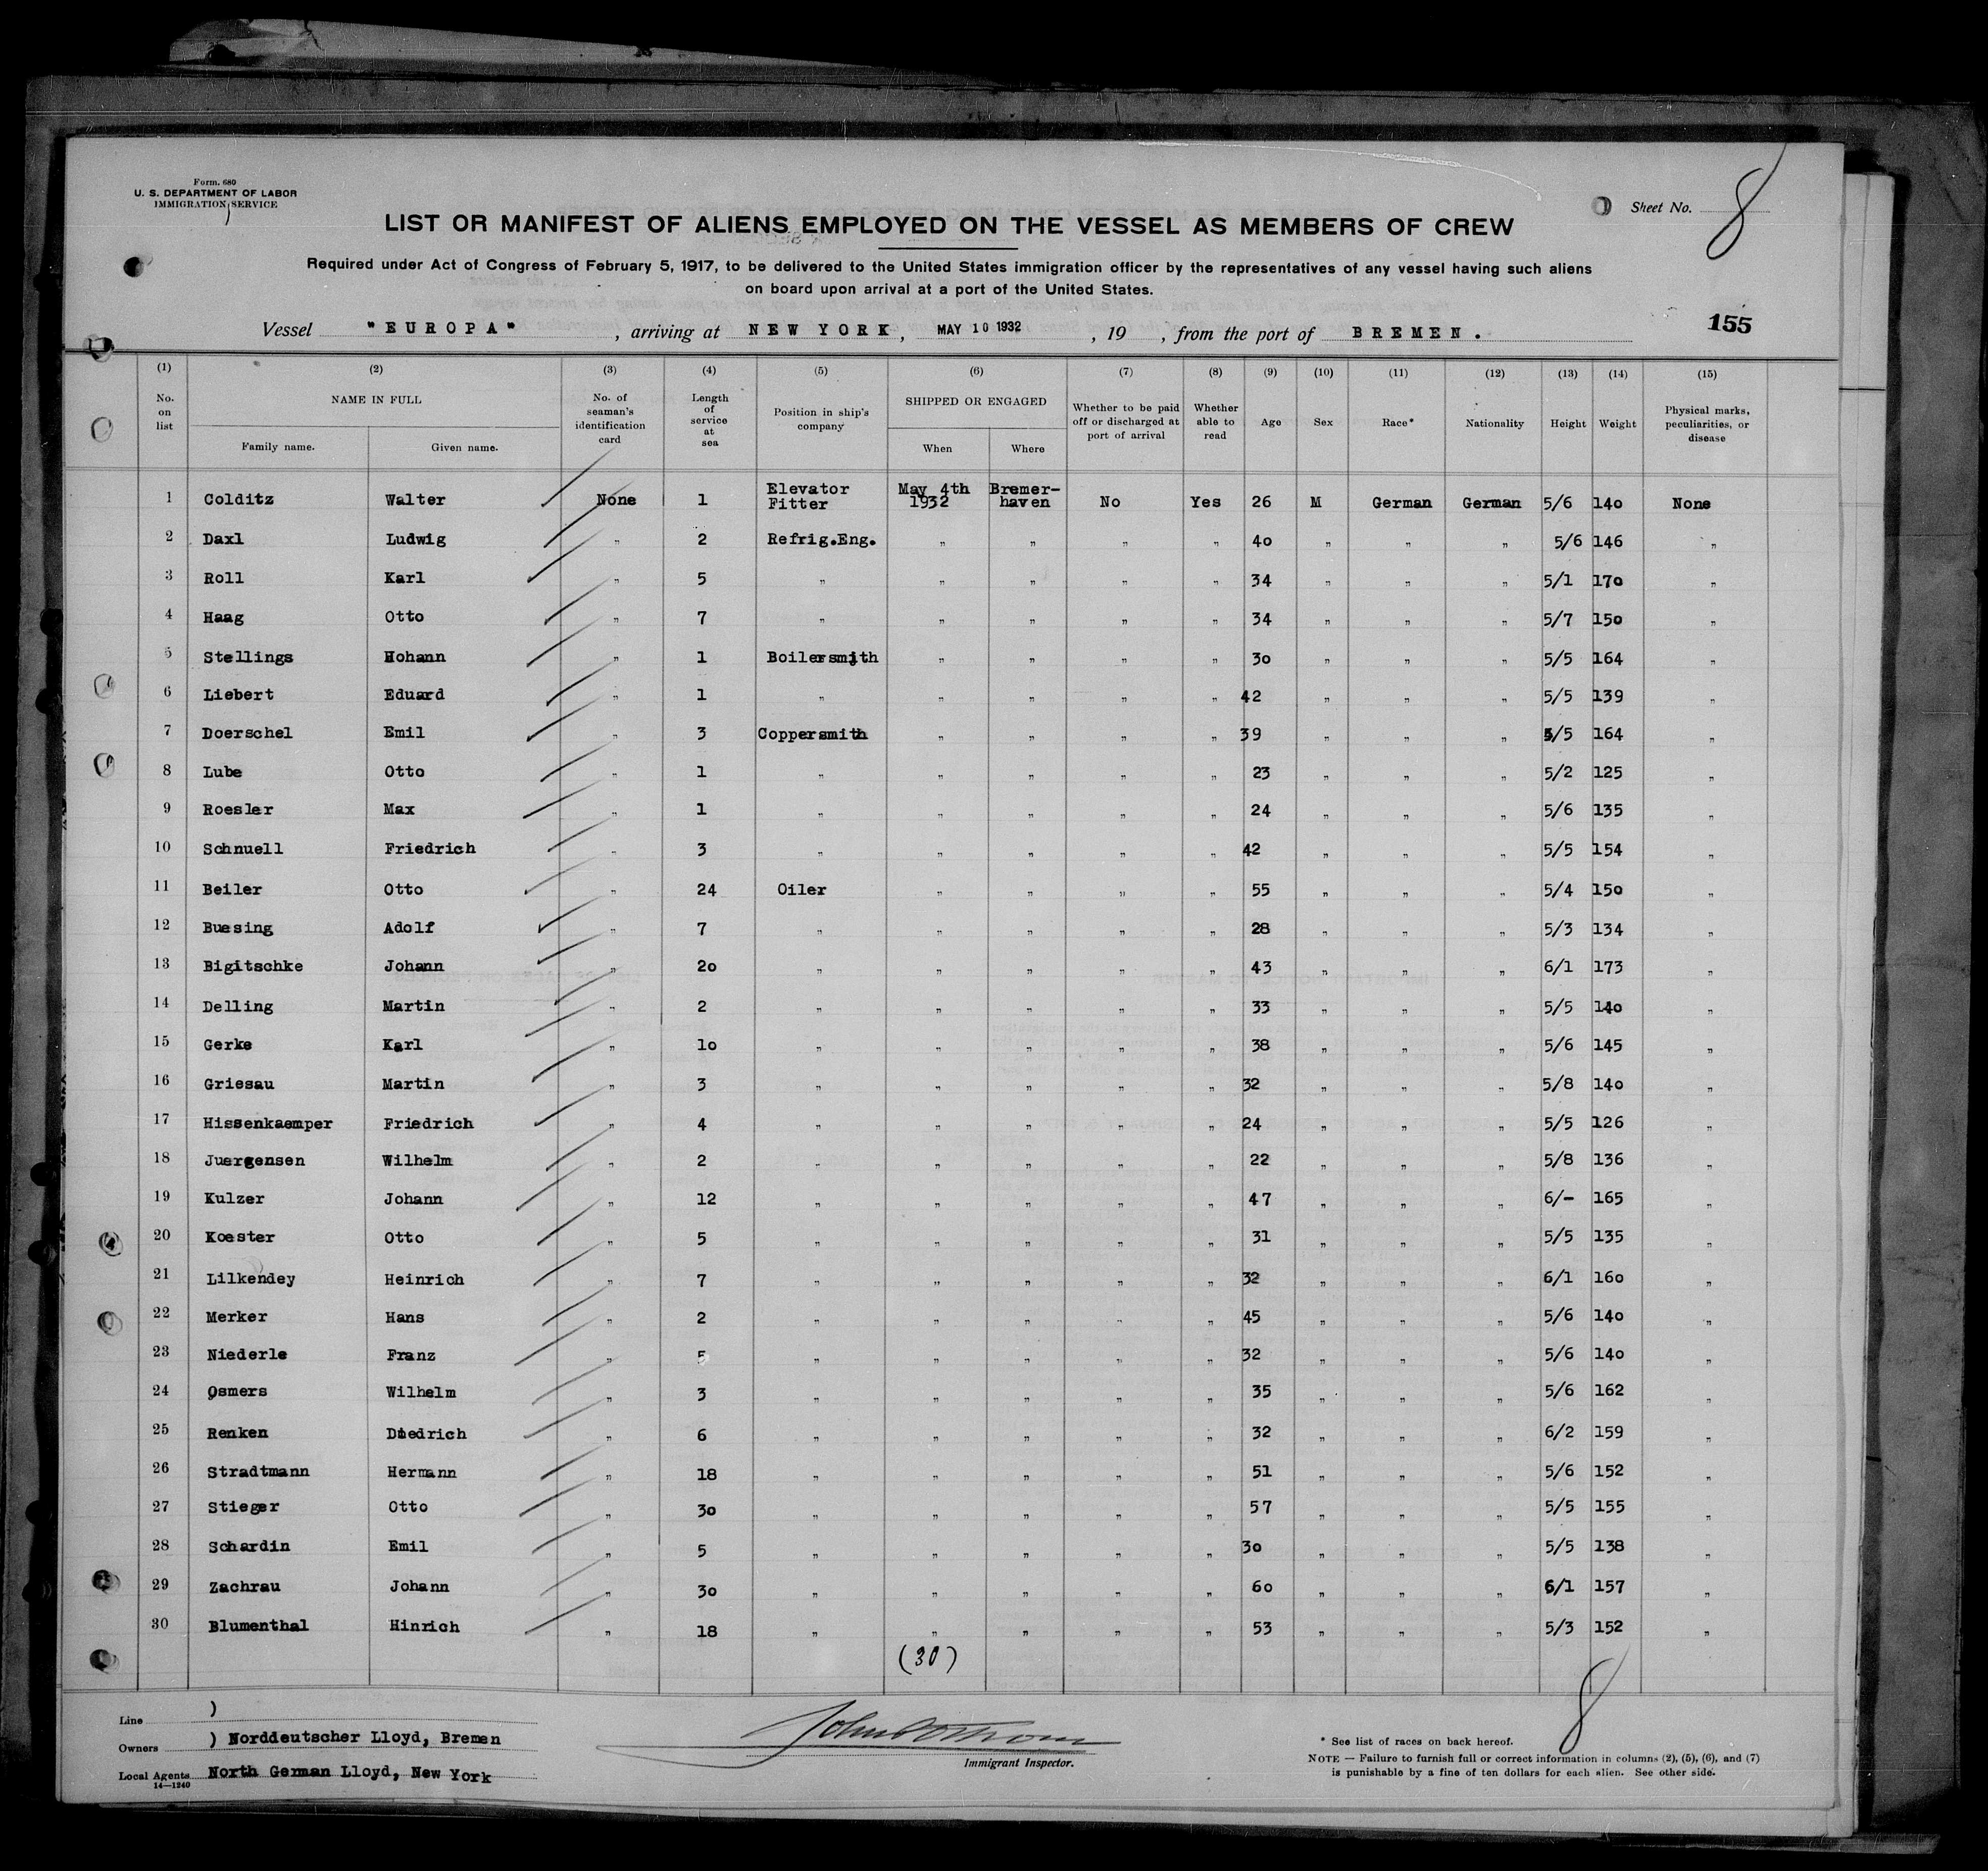 Form. 680
U. S. DEPARTMENT OF LABOR
IMMIGRATION SERVICE
Sheet No. 8
LIST OR MANIFEST OF ALIENS EMPLOYED ON THE VESSEL AS MEMBERS OF CREW
Required under Act of Congress of February 5, 1917, to be delivered to the United States immigration officer by the representatives of any vessel having such aliens
on board upon arrival at a port of the United States.
155
Vessel "EUROPA", arriving at NEW YORK, MAY 10 1932, 19 , from the port of BREMEN.
(1) (2) (3) (4) (5) (6) (7) (8) (9) (10) (11) (12) (13) (14) (15)
No. on list NAME IN FULL Family name. Given name. No. of seaman's identification card Length of service at sea Position in ship's company SHIPPED OR ENGAGED When Where Whether to be paid off or discharged at port of arrival Whether able to read Age Sex Race* Nationality Height Weight Physical marks, peculiarities, or disease
1 Colditz Walter None 1 Elevator Fitter May 4th 1932 Bremer-haven No Yes 26 M German German 5/6 140 None
2 Daxl Ludwig " 2 Refrig.Eng. " " " " 40 " " " 5/6 146 "
3 Roll Karl " 5 " " " " " 34 " " " 5/1 170 "
4 Haag Otto " 7 " " " " " 34 " " " 5/7 150 "
5 Stellings Hohann " 1 Boilersmith " " " " 30 " " " 5/5 164 "
6 Liebert Eduard " 1 " " " " " 42 " " " 5/5 139 "
7 Doerschel Emil " 3 Coppersmith " " " " 39 " " " 5/5 164 "
8 Lube Otto " 1 " " " " " 23 " " " 5/2 125 "
9 Roesler Max " 1 " " " " " 24 " " " 5/6 135 "
10 Schnuell Friedrich " 3 " " " " " 42 " " " 5/5 154 "
11 Beiler Otto " 24 Oiler " " " " 55 " " " 5/4 150 "
12 Buesing Adolf " 7 " " " " " 28 " " " 5/3 134 "
13 Bigitschke Johann " 20 " " " " " 43 " " " 6/1 173 "
14 Delling Martin " 2 " " " " " 33 " " " 5/5 140 "
15 Gerke Karl " 10 " " " " " 38 " " " 5/6 145 "
16 Griesau Martin " 3 " " " " " 32 " " " 5/8 140 "
17 Hissenkaemper Friedrich " 4 " " " " " 24 " " " 5/5 126 "
18 Juergensen Wilhelm " 2 " " " " " 22 " " " 5/8 136 "
19 Kulzer Johann " 12 " " " " " 47 " " " 6/- 165 "
20 Koester Otto " 5 " " " " " 31 " " " 5/5 135 "
21 Lilkendey Heinrich " 7 " " " " " 32 " " " 6/1 160 "
22 Merker Hans " 2 " " " " " 45 " " " 5/6 140 "
23 Niederle Franz " 5 " " " " " 32 " " " 5/6 140 "
24 Osmers Wilhelm " 3 " " " " " 35 " " " 5/6 162 "
25 Renken Diedrich " 6 " " " " " 32 " " " 6/2 159 "
26 Stradtmann Hermann " 18 " " " " " 51 " " " 5/6 152 "
27 Stieger Otto " 30 " " " " " 57 " " " 5/5 155 "
28 Schardin Emil " 5 " " " " " 30 " " " 5/5 138 "
29 Zachrau Johann " 30 " " " " " 60 " " " 6/1 157 "
30 Blumenthal Hinrich " 18 " " " " " 53 " " " 5/3 152 "
(30)
8
Line )
Owners ) Norddeutscher Lloyd, Bremen
Local Agents North German Lloyd, New York
14—1240
Immigrant Inspector.
* See list of races on back hereof.
NOTE — Failure to furnish full or correct information in columns (2), (5), (6), and (7)
is punishable by a fine of ten dollars for each alien. See other side.